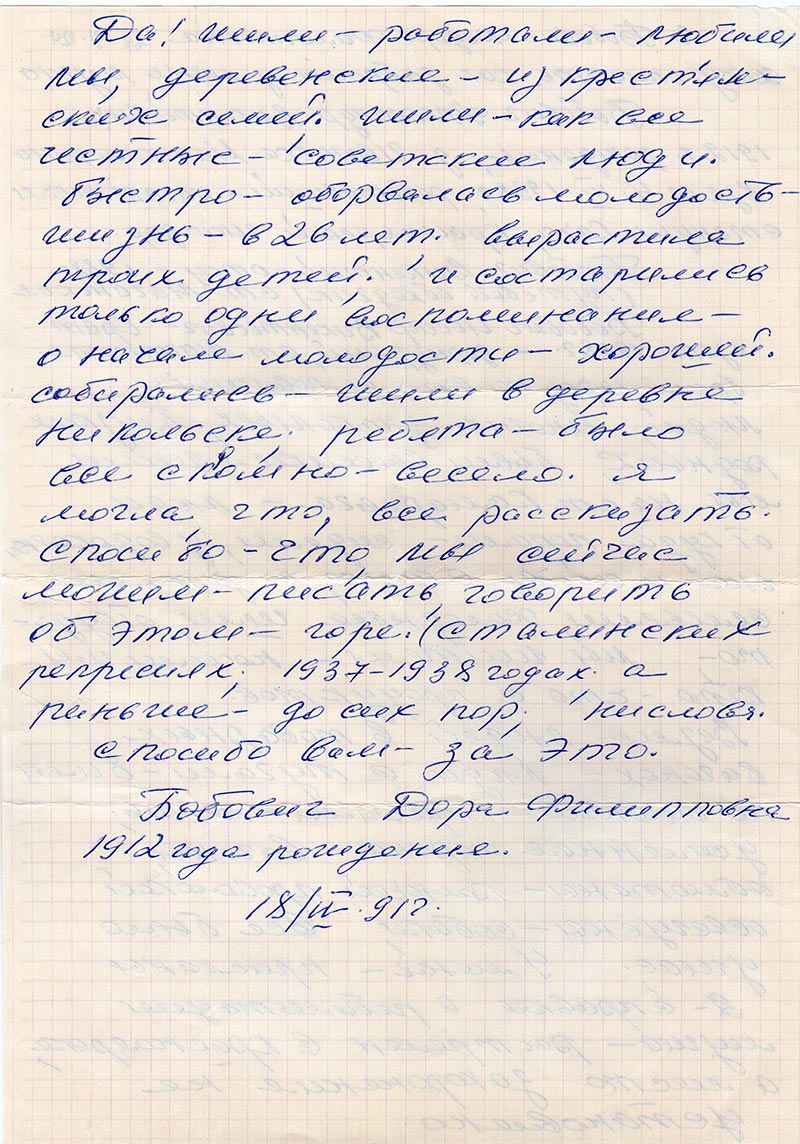 Да! жили – работали – любили
мы, деревенские – из крестьян-
ских семей. жили – как все
честные – советские люди.
Быстро – оборвалась молодость –
жизнь – в 26 лет. вырастила
троих детей. и состарились
только одни воспоминания –
о начале молодости – хорошей.
собирались – жили в деревне
Никольске. ребята – было
все скромно – весело. я
могла, что, все рассказать.
Спосибо – что, мы сейчас
можем – писать, говорить
об этом – горе. (Сталинских
репресиях. 1937–1938 годах. а
раньше – до сих пор. ни слова.
спосибо вам – за это.
Бобович Дора Филипповна
1912 года рождения.
18/IV. 91г.